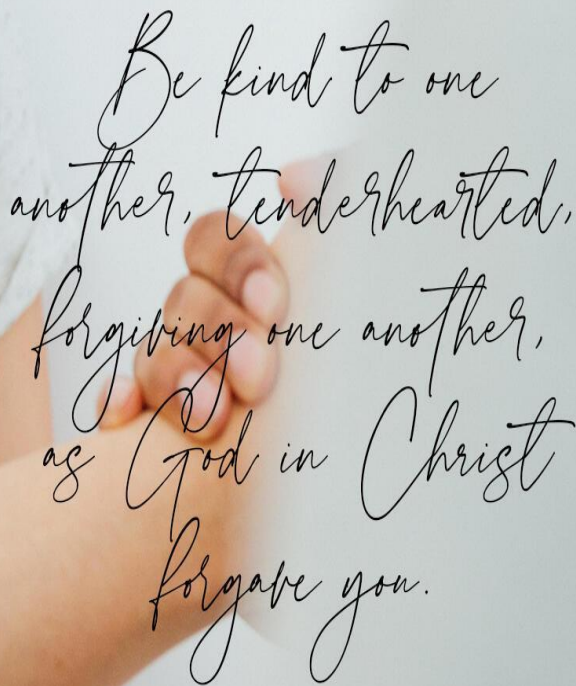 Be kind to one
another, tenderhearted,
forgiving one another,
as God in Christ
forgave you.